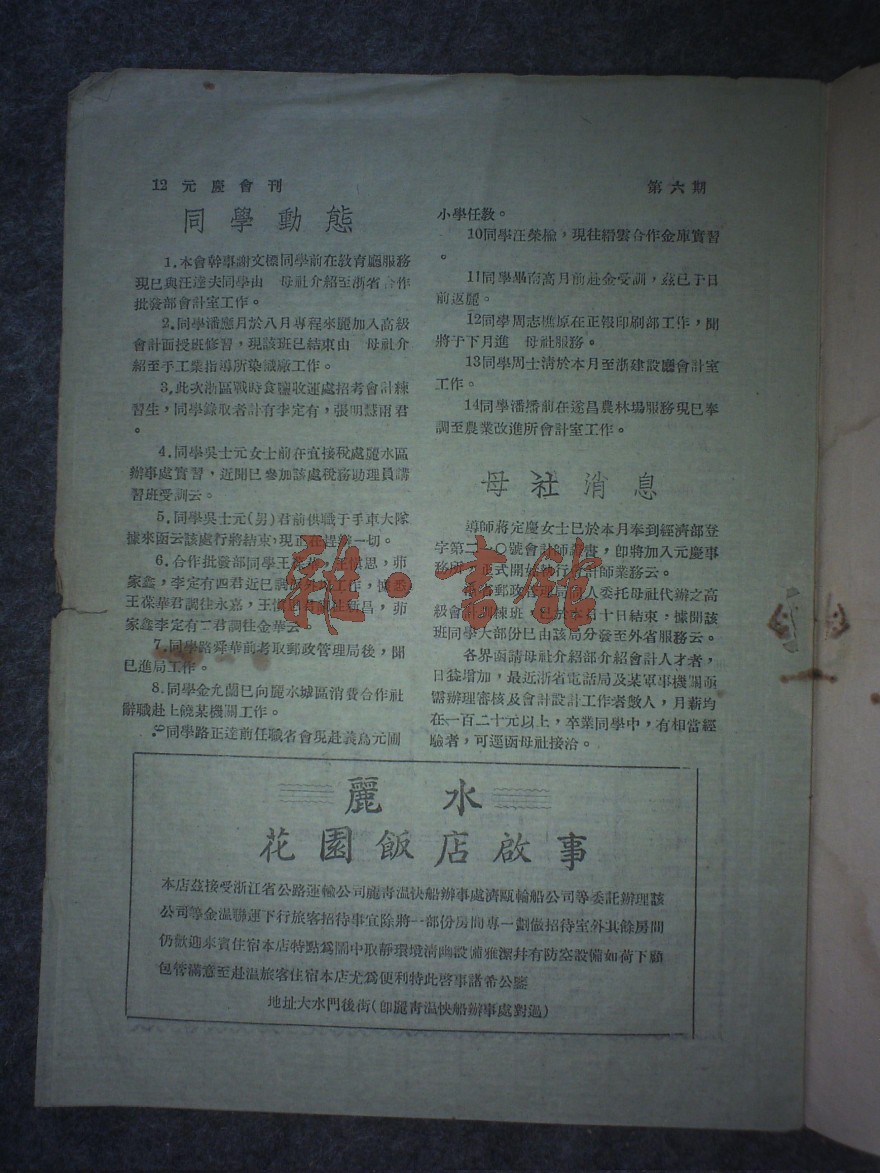 12 元慶會刊
第六期
同學動態
1.本會幹事謝文標同學前在教育廳服務
現已與汪達夫同學由 母社介紹至浙省合作
批發部會計室工作。
2.同學潘應月於八月專程來麗加入高級
會計面授班修習,現該班已結束由 母社介
紹至手工業指導所染織廠工作。
3.此次浙區戰時食鹽收運處招考會計練
習生,同學錄取者計有李定有,張明慧兩君
。
4.同學吳士元女士前在直接稅處麗水區
辦事處實習,近聞已參加該處稅務助理員講
習班受訓云。
5.同學吳士元(男)君前供職于手車大隊
據來函云該處行將結束,現正在趕辦一切。
6.合作批發部同學王葆華,王慎思,茆
家鑫,李定有四君近已調派外埠工作,據悉
王葆華君調往永嘉,王慎思君調往新昌,茆
家鑫李定有二君調往金華云
7.同學路舜華前考取郵政管理局後,聞
已進局工作。
8.同學金允蘭已向麗水城區消費合作社
辭職赴上饒某機關工作。
9.同學路正達前任職省會現赴義烏元圃
小學任教。
10同學汪榮楹,現往縉雲合作金庫實習
。
11同學 南高月前赴金受訓,茲已于日
前返麗。
12同學周志 原在正報印刷部工作,聞
將于下月進 母社服務。
13同學周士清於本月至浙建設廳會計室
工作。
14同學潘 前在遂昌農林場服務現已奉
調至農業改進所會計室工作。
母社消息
導師蔣定慶女士已於本月奉到經濟部登
字第二 〇號會計師證書,即將加入元慶事
務所,正式開始執行會計師業務云。
本省郵政管理局 人委托母社代辦之高
級會計訓練班,已於本月十日結束,據聞該
班同學大部份已由該局分發至外省服務云。
各界函請母社介紹部介紹會計人才者,
日益增加,最近浙省電話局及某軍事機關亟
需辦理審核及會計設計工作者數人,月薪均
在一百二十元以上,卒業同學中,有相當經
驗者,可逕函母社接洽。
麗水
花園飯店啟事
本店茲接受浙江省公路運輸公司麗青溫快船辦事處濟甌輪船公司等委託辦理該
公司等金溫聯運下行旅客招待事宜除將一部份房間專一劃做招待室外其餘房間
仍歡迎來賓住宿本店特點為鬧中取靜環境清幽設備雅潔并有防空設備如荷下顧
包管滿意至赴溫旅客住宿本店尤為便利特此啓事諸希公鑒
地址大水門後街(即麗青溫快船辦事處對過)
雜·書館